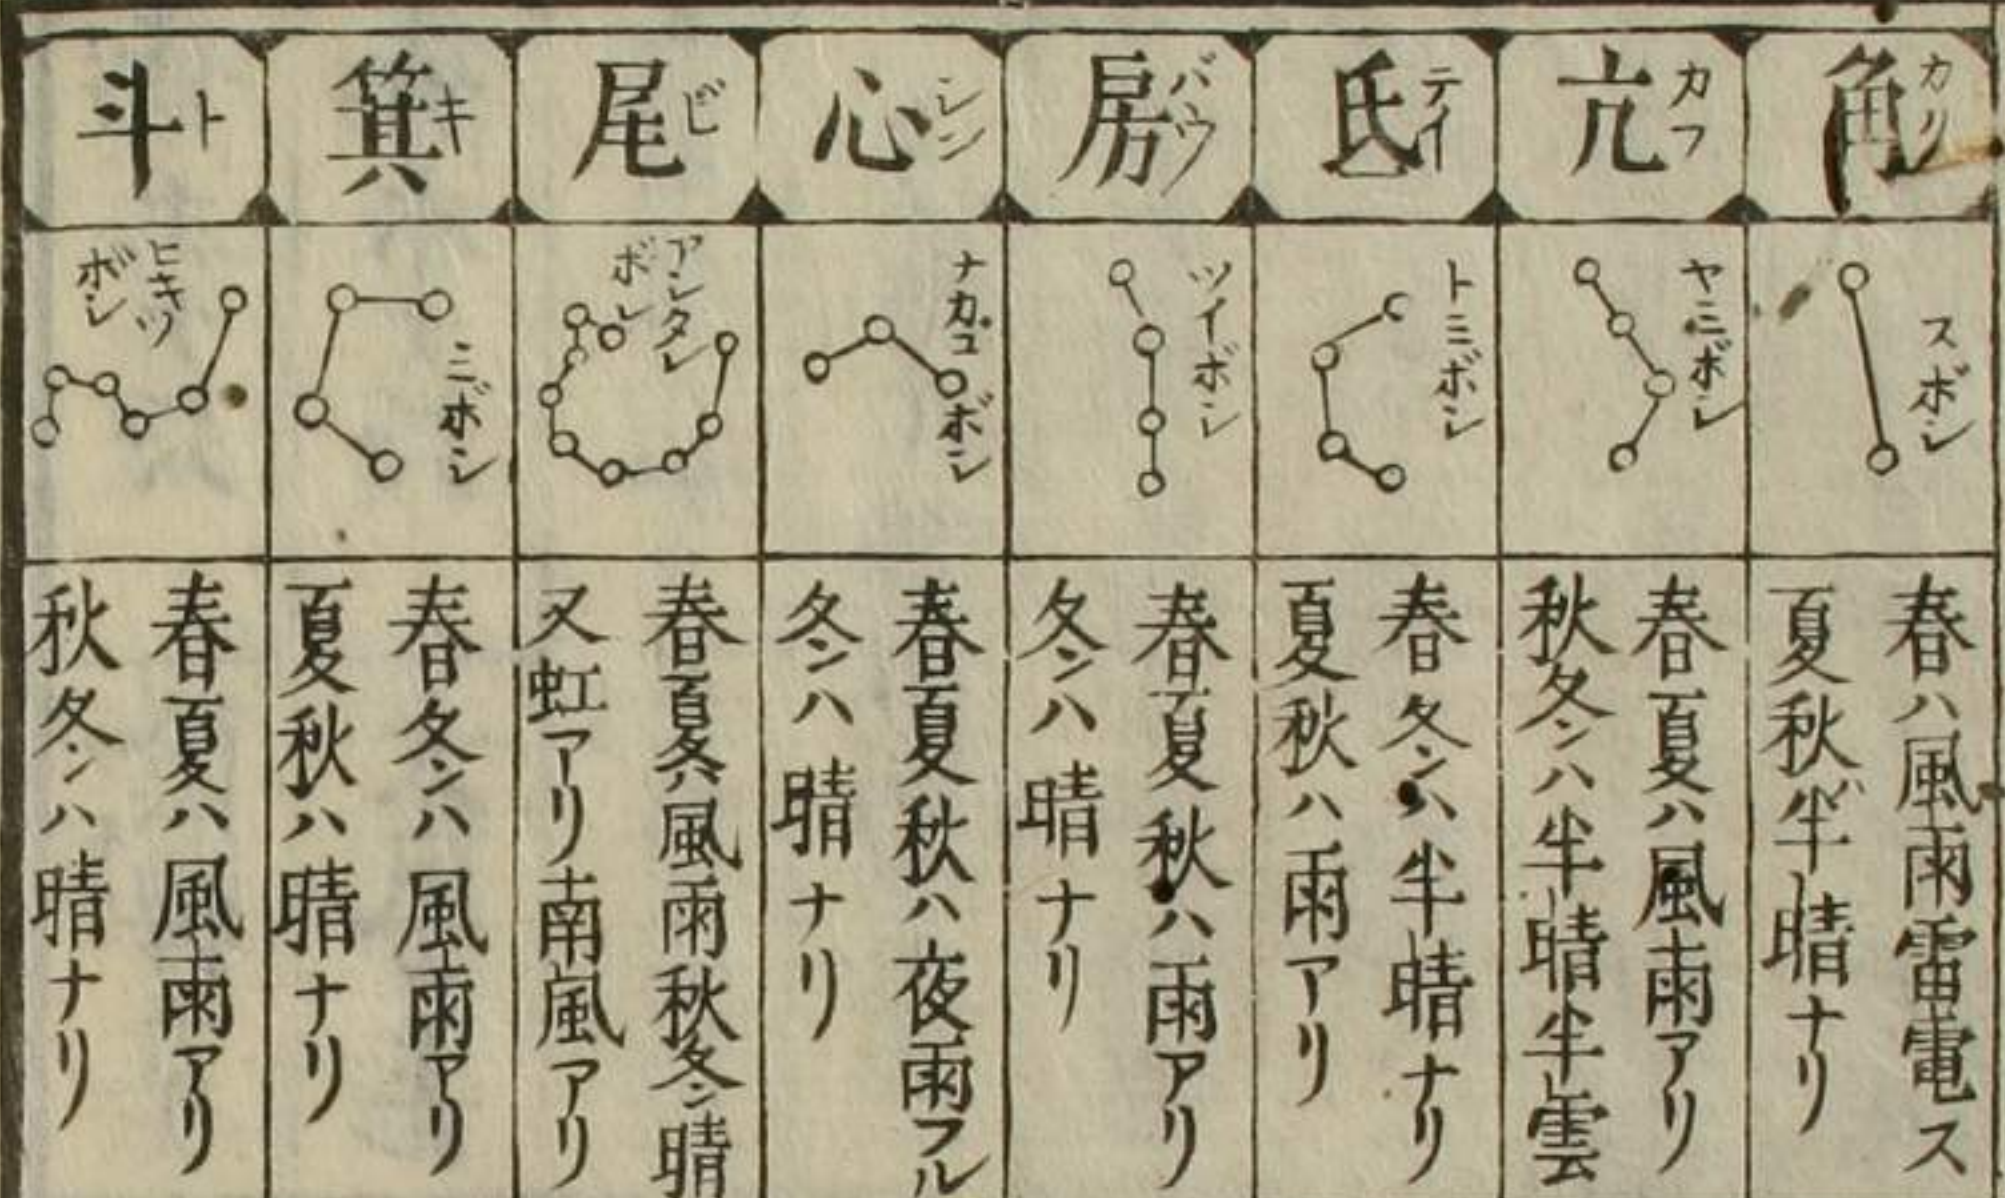 角
カク
スボシ
春ハ風雨雷電ス
夏秋ハ半晴ナリ
亢
カフ
ヤニボシ
春夏ハ風雨アリ
秋冬ンハ半晴半雲
氐
テイ
トミボシ
春冬ンハ半晴ナリ
夏秋ハ雨アリ
房
バウ
ツイボシ
春夏秋ハ雨アリ
冬ンハ晴ナリ
心
シン
ナカゴボシ
春夏秋ハ夜雨フル
冬ンハ晴ナリ
尾
ビ
アシタレ
ボシ
春夏ハ風雨秋冬ン晴
又虹アリ南風アリ
箕
キ
ミボシ
春冬ンハ風雨アリ
夏秋ハ晴ナリ
斗
ト
ヒキツ
ボシ
春夏ハ風雨アリ
秋冬ンハ晴ナリ